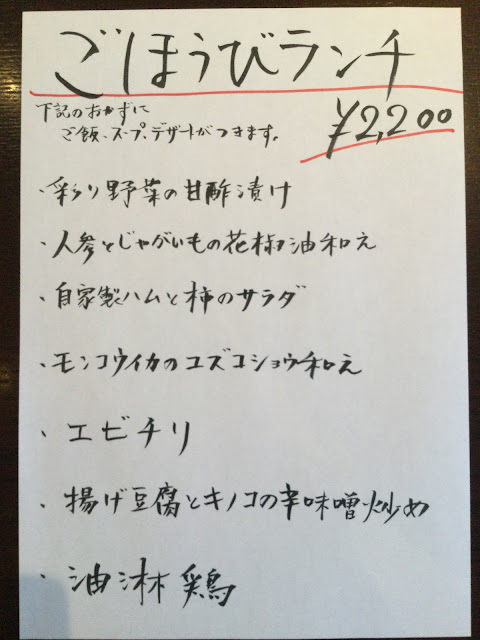 ごほうびランチ
下記のおかずに
ご飯、スープ、デザートがつきます。
¥2,200
・彩り野菜の甘酢漬け
・人参とじゃがいもの花椒油和え
・自家製ハムと柿のサラダ
・モンコウイカのユズコショウ和え
・エビチリ
・揚げ豆腐とキノコの辛味噌炒め
・油淋鶏